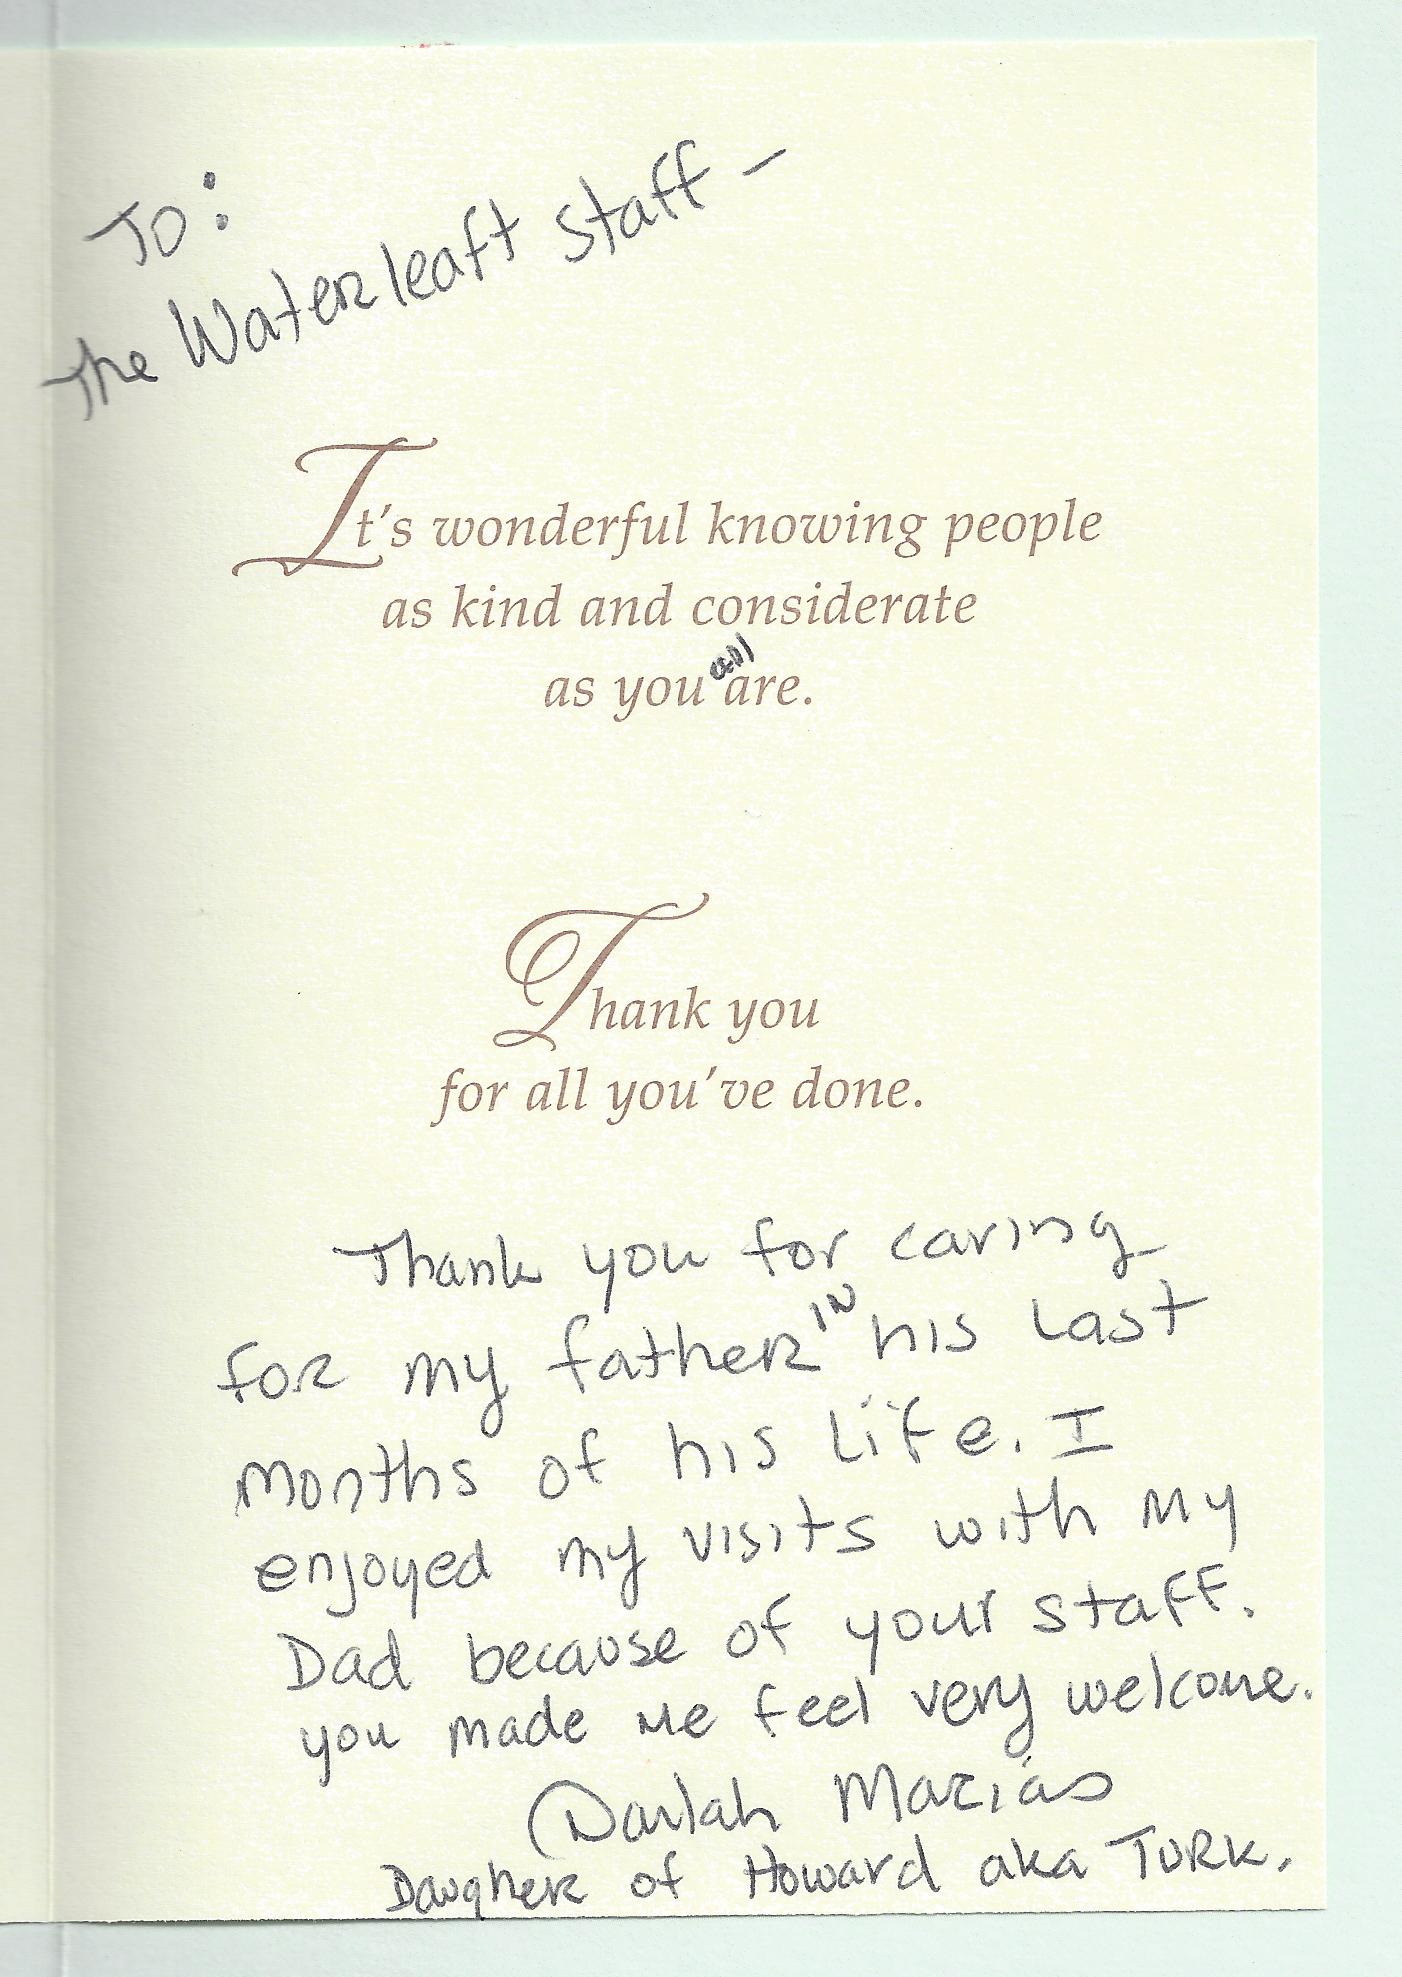 To:
The Waterleaft staff –
It's wonderful knowing people
as kind and considerate
as you all are.
Thank you
for all you've done.
Thank you for caring
for my father IN his last
months of his life. I
enjoyed my visits with my
Dad because of your staff.
you made me feel very welcome.
Darlah
Daugher of Howard aka TURK.